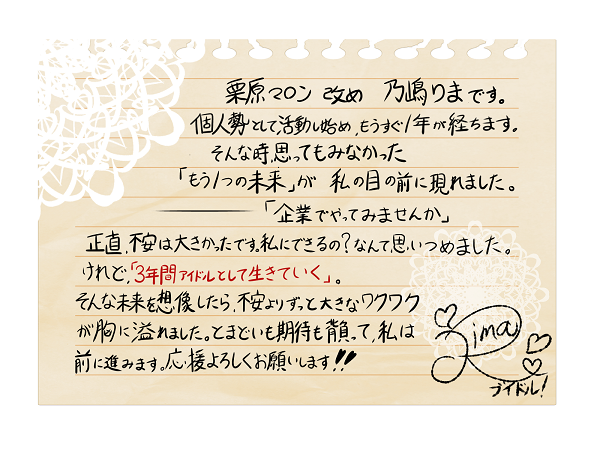 栗原マロン 改め 乃嶋りまです。
個人勢として活動し始め、もうすぐ1年が経ちます。
そんな時、思ってもみなかった
「もう1つの未来」が 私の目の前に現れました。
――――「企業でやってみませんか」
正直、不安は大きかったです。私にできるの?なんて思いつめました。
けれど、「3年間アイドルとして生きていく」。
そんな未来を想像したら、不安よりずっと大きなワクワク
が胸に溢れました。とまどいも期待も背負って、私は
前に進みます。応援よろしくお願いします!!
Rima
ブイドル!